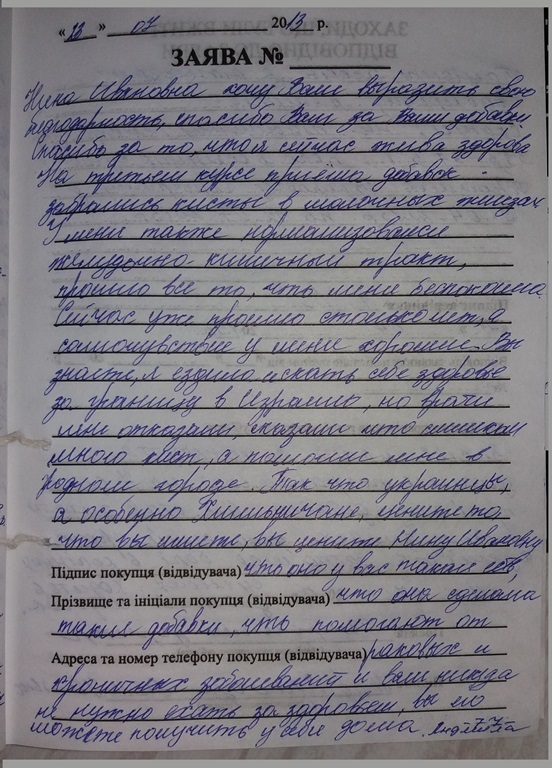 "12" 07 2013 р.
ЗАЯВА №
Нина Ивановна хочу Вам выразить свою
благодарность, спасибо Вам за Ваши добавки
Спасибо за то, что я сейчас жива здорова
На третьем курсе приёма добавок -
забрались кисты в молочных железах
У меня также нормализовался
желудочно кишечный тракт,
прошло все то, что меня беспокоило.
Сейчас уже прошло столько лет, а
самочувствие у меня хорошее. Вы
знаете, я ездила искать себе здоровье
за границу в Израиль, но врачи
мне отказали, сказали что слишком
много кист, а помогли мне в
родном городе. Так что украинцы,
а особенно Хмельничане, цените то
что вы имеете, вы цените Нину Ивановну
Підпис покупця (відвідувача) что она у вас такая есть,
Прізвище та ініціали покупця (відвідувача) что она сделала
такие добавки, что помогают от
Адреса та номер телефону покупця (відвідувача) раковых и
хроничных заболеваний и вам никуда
не нужно ехать за здоровьем, вы его
можете получить у себя дома.